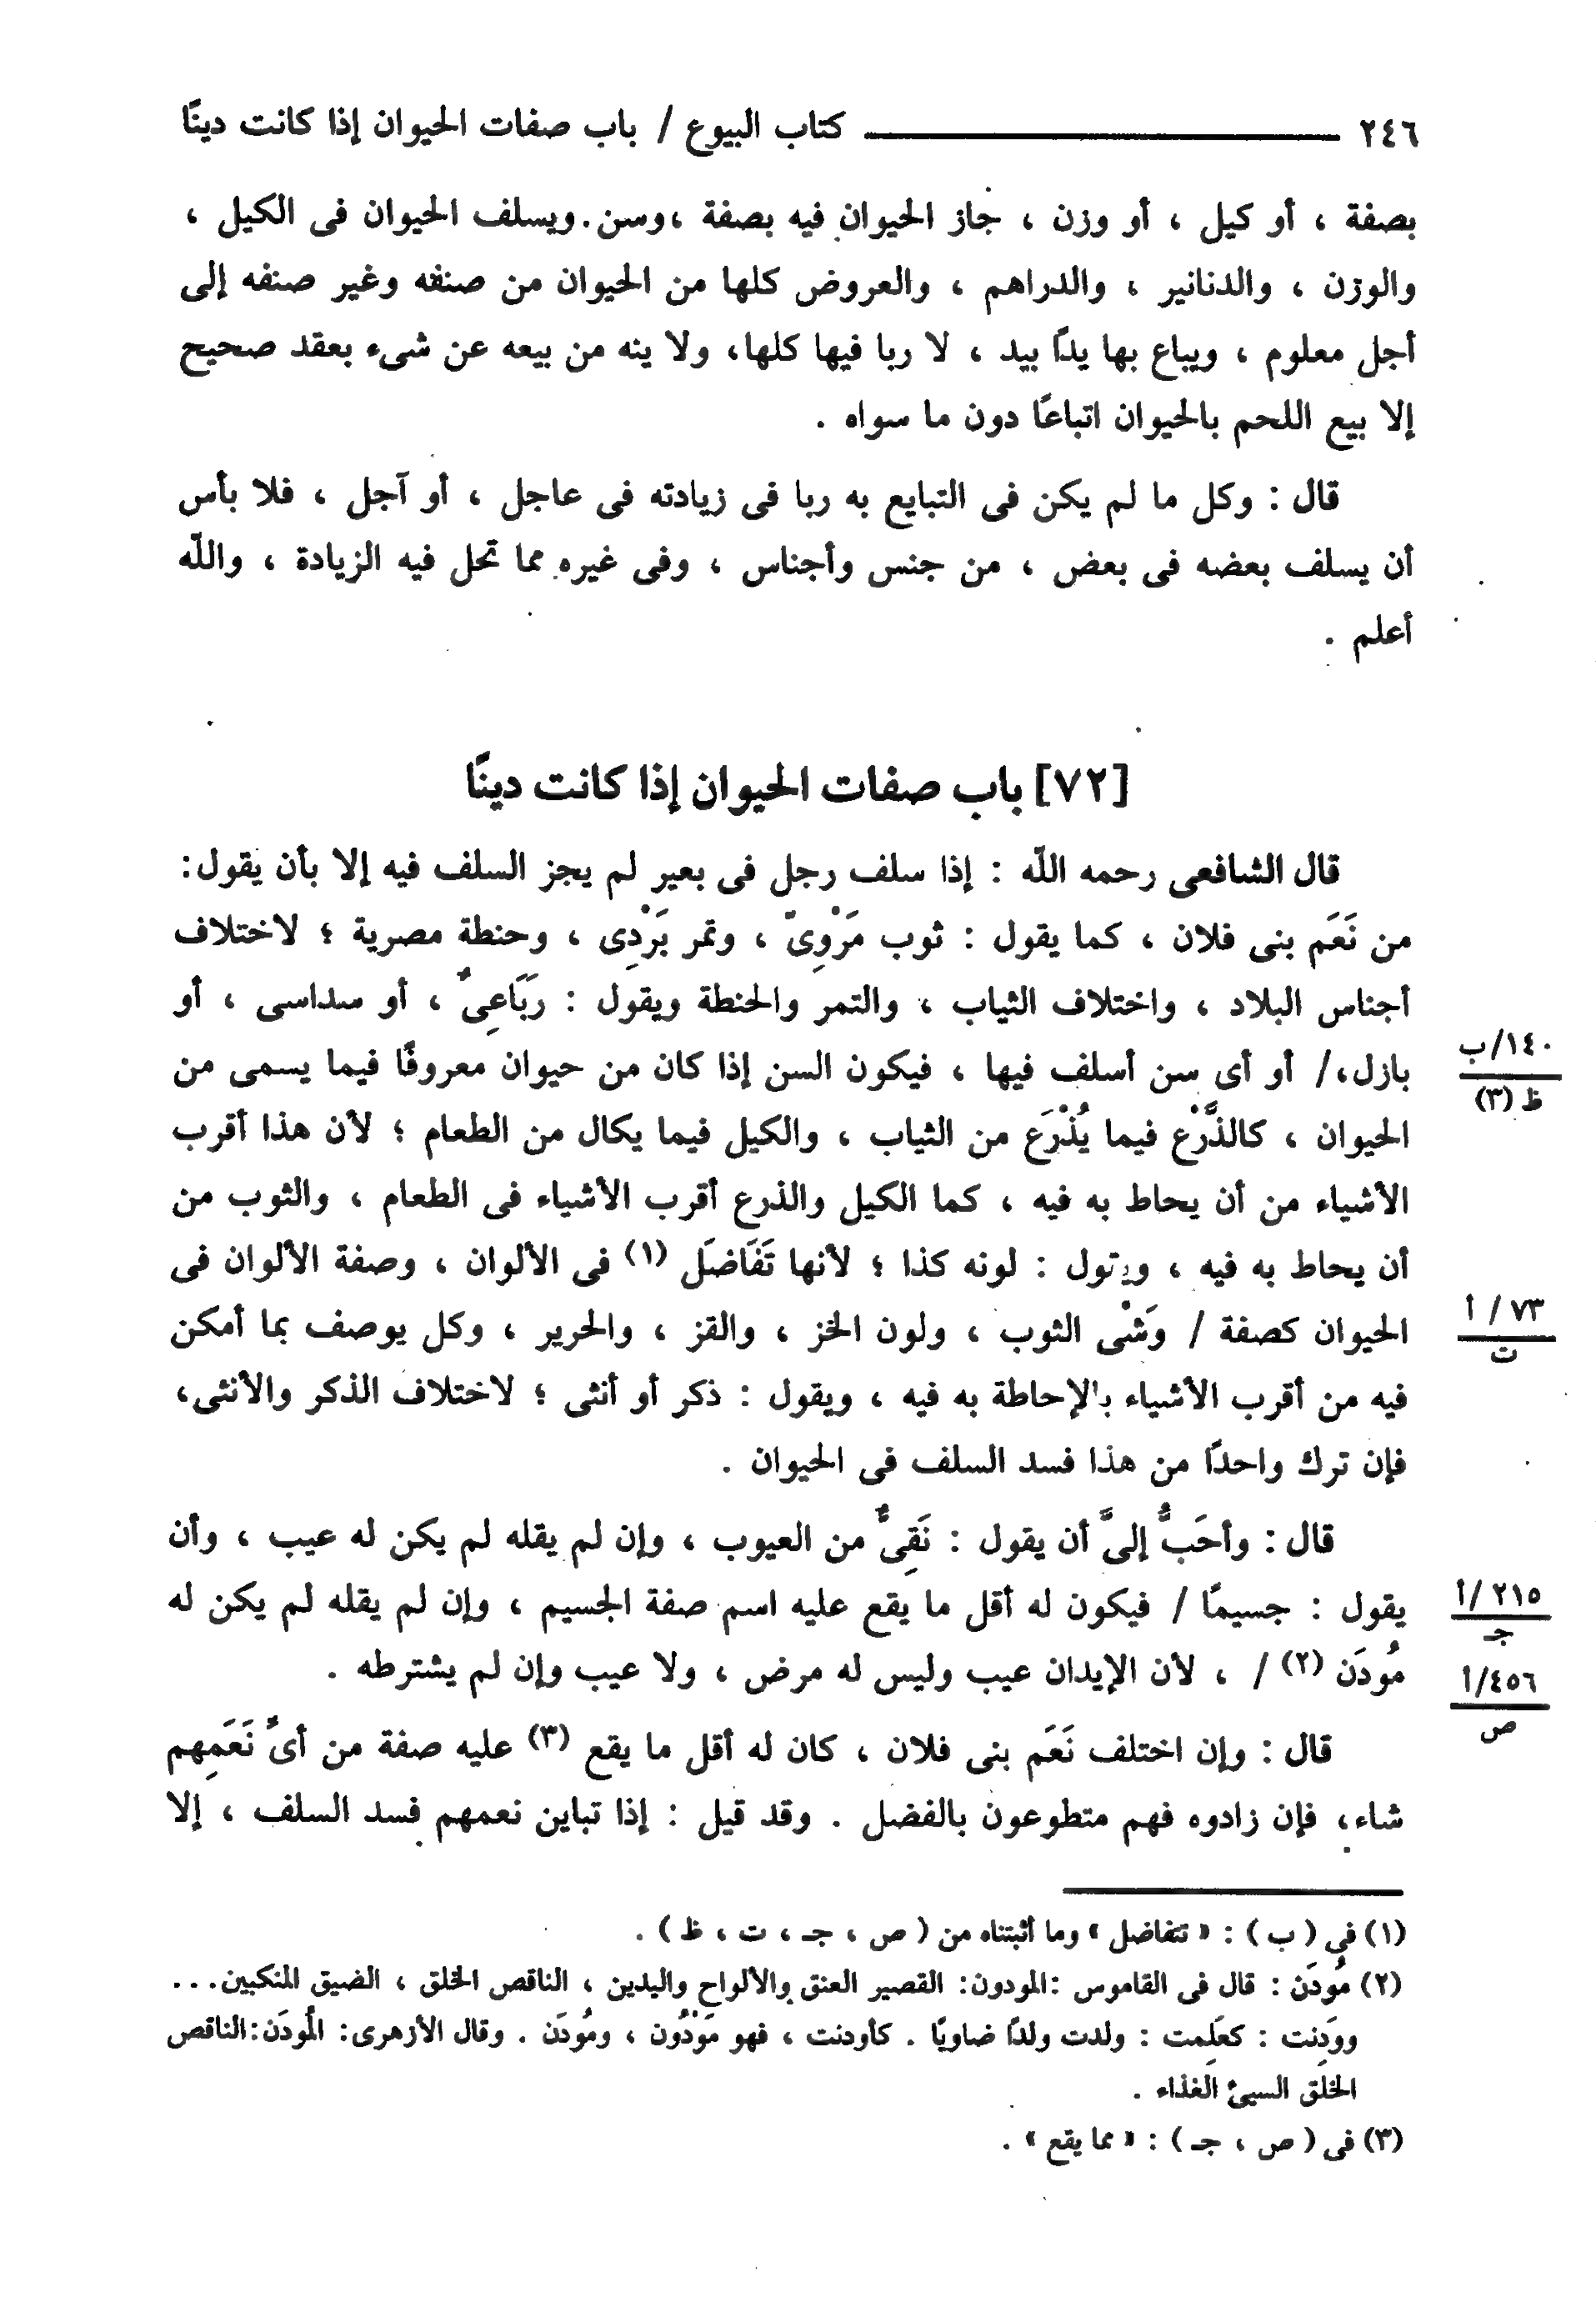 ٢٤٦ كتاب البيوع / باب صفات الحيوان إذا كانت دينًا
بصفة ، أو كيل ، أو وزن ، جاز الحيوان فيه بصفة ،وسن. ويسلف الحيوان فى الكيل ،
والوزن ، والدنانير ، والدراهم ، والعروض كلها من الحيوان من صنفه وغير صنفه إلى
أجل معلوم ، ويباع بها يدًا بيد ، لا ربا فيها كلها، ولا ينه من بيعه عن شىء بعقد صحيح
إلا بيع اللحم بالحيوان اتباعًا دون ما سواه .
قال : وكل ما لم يكن فى التبايع به ربا فى زيادته فى عاجل ، أو آجل ، فلا بأس
أن يسلف بعضه فى بعض ، من جنس وأجناس ، وفى غيره مما تحل فيه الزيادة ، واللّه
أعلم .
[٧٢] باب صفات الحيوان إذا كانت دينًا
قال الشافعى رحمه اللّه : إذا سلف رجل فى بعير لم يجز السلف فيه إلا بأن يقول:
من نَعَم بنى فلان ، كما يقول : ثوب مَرْوِىّ ، وتمر بَرْدِى ، وحنطة مصرية ؛ لاختلاف
أجناس البلاد ، واختلاف الثياب ، والتمر والحنطة ويقول : رَبَاعِىٌّ ، أو سداسى ، أو
بازل،/ أو أى سن أسلف فيها ، فيكون السن إذا كان من حيوان معروفًا فيما يسمى من
١٤٠/ب
ظ (٣)
الحيوان ، كالذَّرْع فيما يُذْرَع من الثياب ، والكيل فيما يكال من الطعام ؛ لأن هذا أقرب
الأشياء من أن يحاط به فيه ، كما الكيل والذرع أقرب الأشياء فى الطعام ، والثوب من
أن يحاط به فيه ، ويقول : لونه كذا ؛ لأنها تَفَاضَل (١) فى الألوان ، وصفة الألوان فى
الحيوان كصفة / وَشْى الثوب ، ولون الخز ، والقز ، والحرير ، وكل يوصف بما أمكن
٧٣ / أ
ت
فيه من أقرب الأشياء بالإحاطة به فيه ، ويقول : ذكر أو أنثى ؛ لاختلاف الذكر والأنثى،
فإن ترك واحدًا من هذا فسد السلف فى الحيوان .
قال : وأحَبُّ إلىَّ أن يقول : نَقِىٌّ من العيوب ، وإن لم يقله لم يكن له عيب ، وأن
يقول : جسيمًا / فيكون له أقل ما يقع عليه اسم صفة الجسيم ، وإن لم يقله لم يكن له
٢١٥ /أ
جـ
مُودَن (٢) / ، لأن الإيدان عيب وليس له مرض ، ولا عيب وإن لم يشترطه .
٤٥٦/أ
ص
قال : وإن اختلف نَعَم بنى فلان ، كان له أقل ما يقع (٣) عليه صفة من أىِّ نَعَمِهم
شاء، فإن زادوه فهم متطوعون بالفضل . وقد قيل : إذا تباين نعمهم فسد السلف ، إلا
(١) فى ( ب ) : « تتفاضل » وما أثبتناه من ( ص ، جـ ، ت ، ظ ) .
(٢) مُودَن : قال فى القاموس :المودون: القصير العنق والألواح واليدين ، الناقص الخلق ، الضيق المنكبين...
وودِنت : كعَلِمت : ولدت ولدًا ضاويًا . كأودنت ، فهو مَوْدُون ، ومُودَن . وقال الأزهرى: المُودَن:الناقص
الخلق السيئ الغذاء .
(٣) فى ( ص ، جـ ) : « مما يقع » .